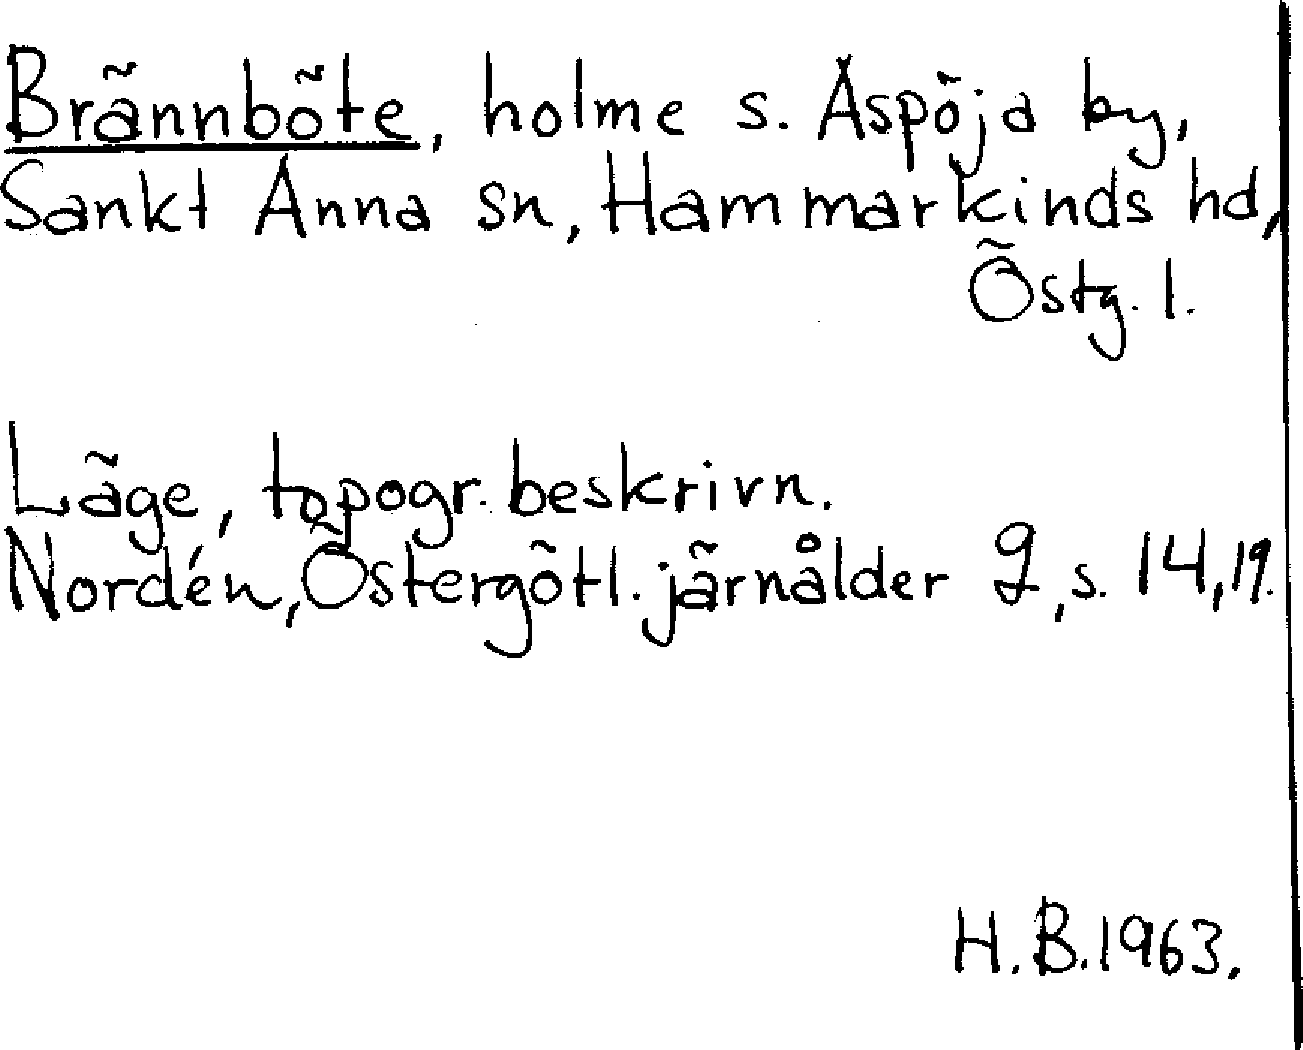 Brännböte, holme s. Aspöja by,
Sankt Anna sn, Hammarkinds hd,
Östg. l.
Läge, topogr. beskrivn.
Nordén, Östergötl. järnålder 2, s. 14, 19.
H.B. 1963.